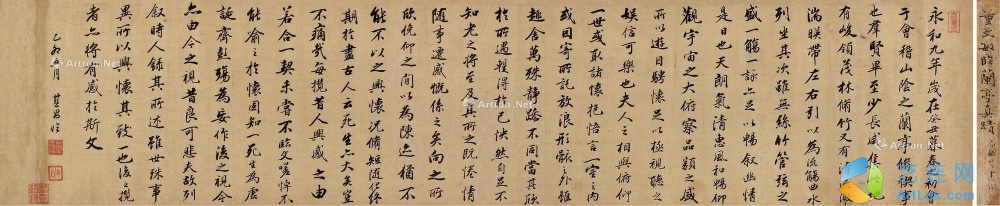 董文敏臨蘭亭真蹟
永和九年歲在癸丑暮春初
于會稽山陰之蘭亭脩禊
也羣賢畢至少長咸集
有峻領茂林脩竹又有清
湍暎帶左右引以為流觴曲水
列坐其次雖無絲竹管弦之
盛一觴一詠亦足以暢敘幽情
是日也天朗氣清惠風和暢仰
觀宇宙之大俯察品類之盛
所以遊目騁懷足以極視聽之
娛信可樂也夫人之相與俯仰
一世或取諸懷抱悟言一室之內
或因寄所託放浪形骸之外雖
趣舍萬殊靜躁不同當其欣
於所遇暫得於己怏然自足不
知老之將至及其所之既惓情
隨事遷感慨係之矣向之所
欣俛仰之間以為陳迹猶不
能不以之興懷況脩短隨化終
期於盡古人云死生亦大矣豈
不痛哉每攬昔人興感之由
若合一契未嘗不臨文嗟悼不
能喻之於懷固知一死生為虛
誕齊彭殤為妄作後之視今
亦由今之視昔良可悲夫故列
敘時人錄其所述雖世殊事
異所以興懷其致一也後之攬
者亦將有感於斯文
其昌臨
Artron.Net